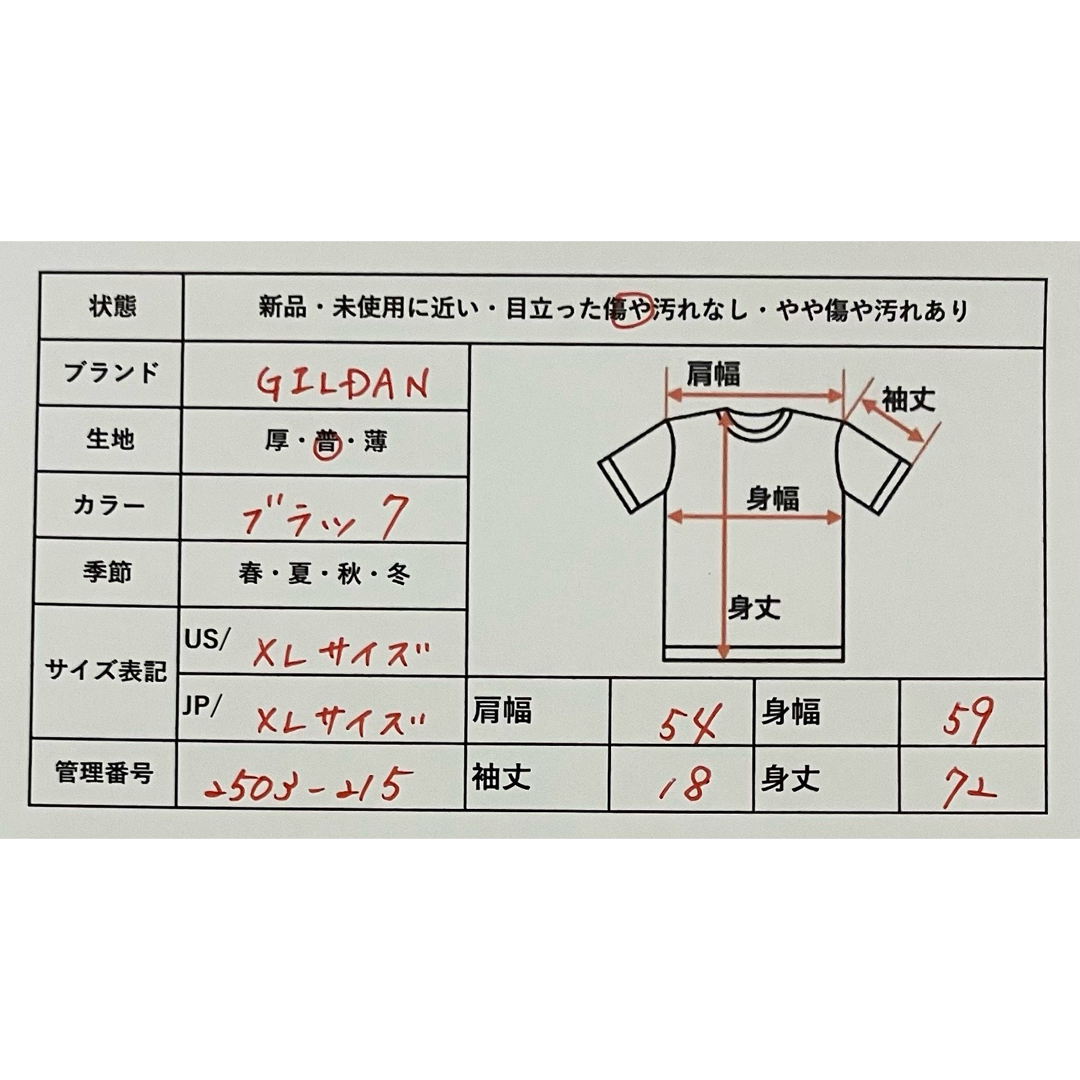 状態 新品・未使用に近い・目立った傷や汚れなし・やや傷や汚れあり
ブランド GILDAN
生地 厚・普・薄
カラー ブラック
季節 春・夏・秋・冬
サイズ表記
US/ XLサイズ
JP/ XLサイズ
管理番号 2503-215
肩幅
袖丈
身幅
身丈
肩幅 54 身幅 59
袖丈 18 身丈 72